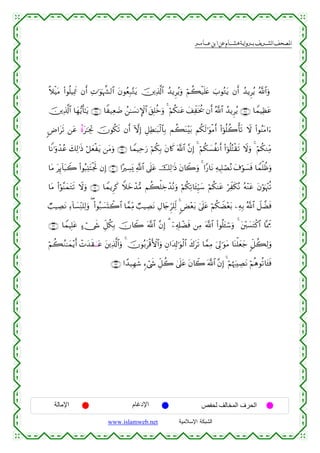 المصحف الشريف برواية هشام عن ابن عامر
وَٱللَّهُ يُرِيدُ أَن يَتُوبَ عَلَيۡكُمۡ وَيُرِيدُ ٱلَّذِينَ يَتَّبِعُونَ ٱلشَّهَوَٰتِ أَن تَمِيلُواْ مَيۡلًا
عَظِيمٗا يُرِيدُ ٱللَّهُ أَن يُخَفِّفَ عَنكُمۡۚ وَخُلِقَ ٱلۡإِنسَٰنُ ضَعِيفٗا يَٰٓأَيُّهَا ٱلَّذِينَ
ءَامَنُواْ لَا تَأۡكُلُوٓاْ أَمۡوَٰلَكُم بَيۡنَكُم بِٱلۡبَٰطِلِ إِلَّآ أَن تَكُونَ تِجَٰرَةٌ عَن تَرَاضٖ
مِّنكُمۡۚ وَلَا تَقۡتُلُوٓاْ أَنفُسَكُمۡۚ إِنَّ ٱللَّهَ كَانَ بِكُمۡ رَحِيمٗا وَمَن يَفۡعَلۡ ذَٰلِكَ عُدۡوَٰنٗا
وَظُلۡمٗا فَسَوۡفَ نُصۡلِيهِ نَارٗاۚ وَكَانَ ذَٰلِكَ عَلَى ٱللَّهِ يَسِيرًا إِن تَجۡتَنِبُواْ كَبَآئِرَ مَا
تُنۡهَوۡنَ عَنۡهُ نُكَفِّرۡ عَنكُمۡ سَيِّـَٔاتِكُمۡ وَنُدۡخِلۡكُم مُّدۡخَلٗا كَرِيمٗا وَلَا تَتَمَنَّوۡاْ مَا
فَضَّلَ ٱللَّهُ بِهِۦ بَعۡضَكُمۡ عَلَىٰ بَعۡضٖۚ لِّلرِّجَالِ نَصِيبٞ مِّمَّا ٱكۡتَسَبُواْۖ وَلِلنِّسَآءِ نَصِيبٞ
مِّمَّا ٱكۡتَسَبۡنَۚ وَسۡـَٔلُواْ ٱللَّهَ مِن فَضۡلِهِۦٓۚ إِنَّ ٱللَّهَ كَانَ بِكُلِّ شَيۡءٍ عَلِيمٗا
وَلِكُلّٖ جَعَلۡنَا مَوَٰلِيَ مِمَّا تَرَكَ ٱلۡوَٰلِدَانِ وَٱلۡأَقۡرَبُونَۚ وَٱلَّذِينَ عَٰقَدَتۡ أَيۡمَٰنُكُمۡ
فَـَٔاتُوهُمۡ نَصِيبَهُمۡۚ إِنَّ ٱللَّهَ كَانَ عَلَىٰ كُلِّ شَيۡءٖ شَهِيدًا
الحرف المخالف لحفص الإدغام الإمالة
الشبكة الإسلامية www.islamweb.net